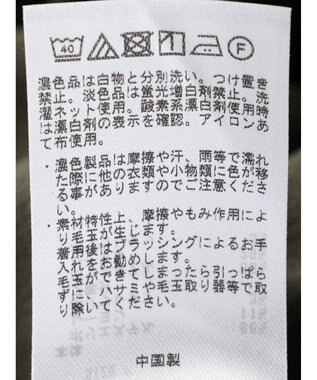 40 F
濃色品は白物と分別洗い。つけ置き
禁止。淡色品は蛍光増白剤禁止。洗
濯ネット使用。酸素系漂白剤使用時
は漂白剤の表示を確認。アイロンあ
て布使用。
・濃色製品は摩擦や汗、雨等で濡れ
た際に他の衣類や小物類に色が移
る事がありますのでご注意くださ
い。
・素材特性上、摩擦やもみ作用によ
り毛玉が生じます。
着用後はブラッシングによるお手
入れをお勧めします。
毛玉ができてしまったら引っぱら
ずに、ハサミや毛玉取り器等で取
り除いてください。
中国製